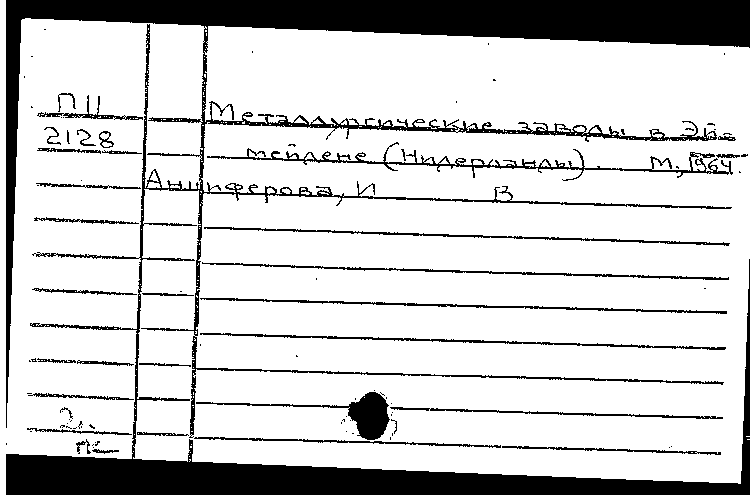 П11 Металлургические заводы в Эй-
2128 мейдене (Нидерланды). М., 1964.
Анциферова, И В
2